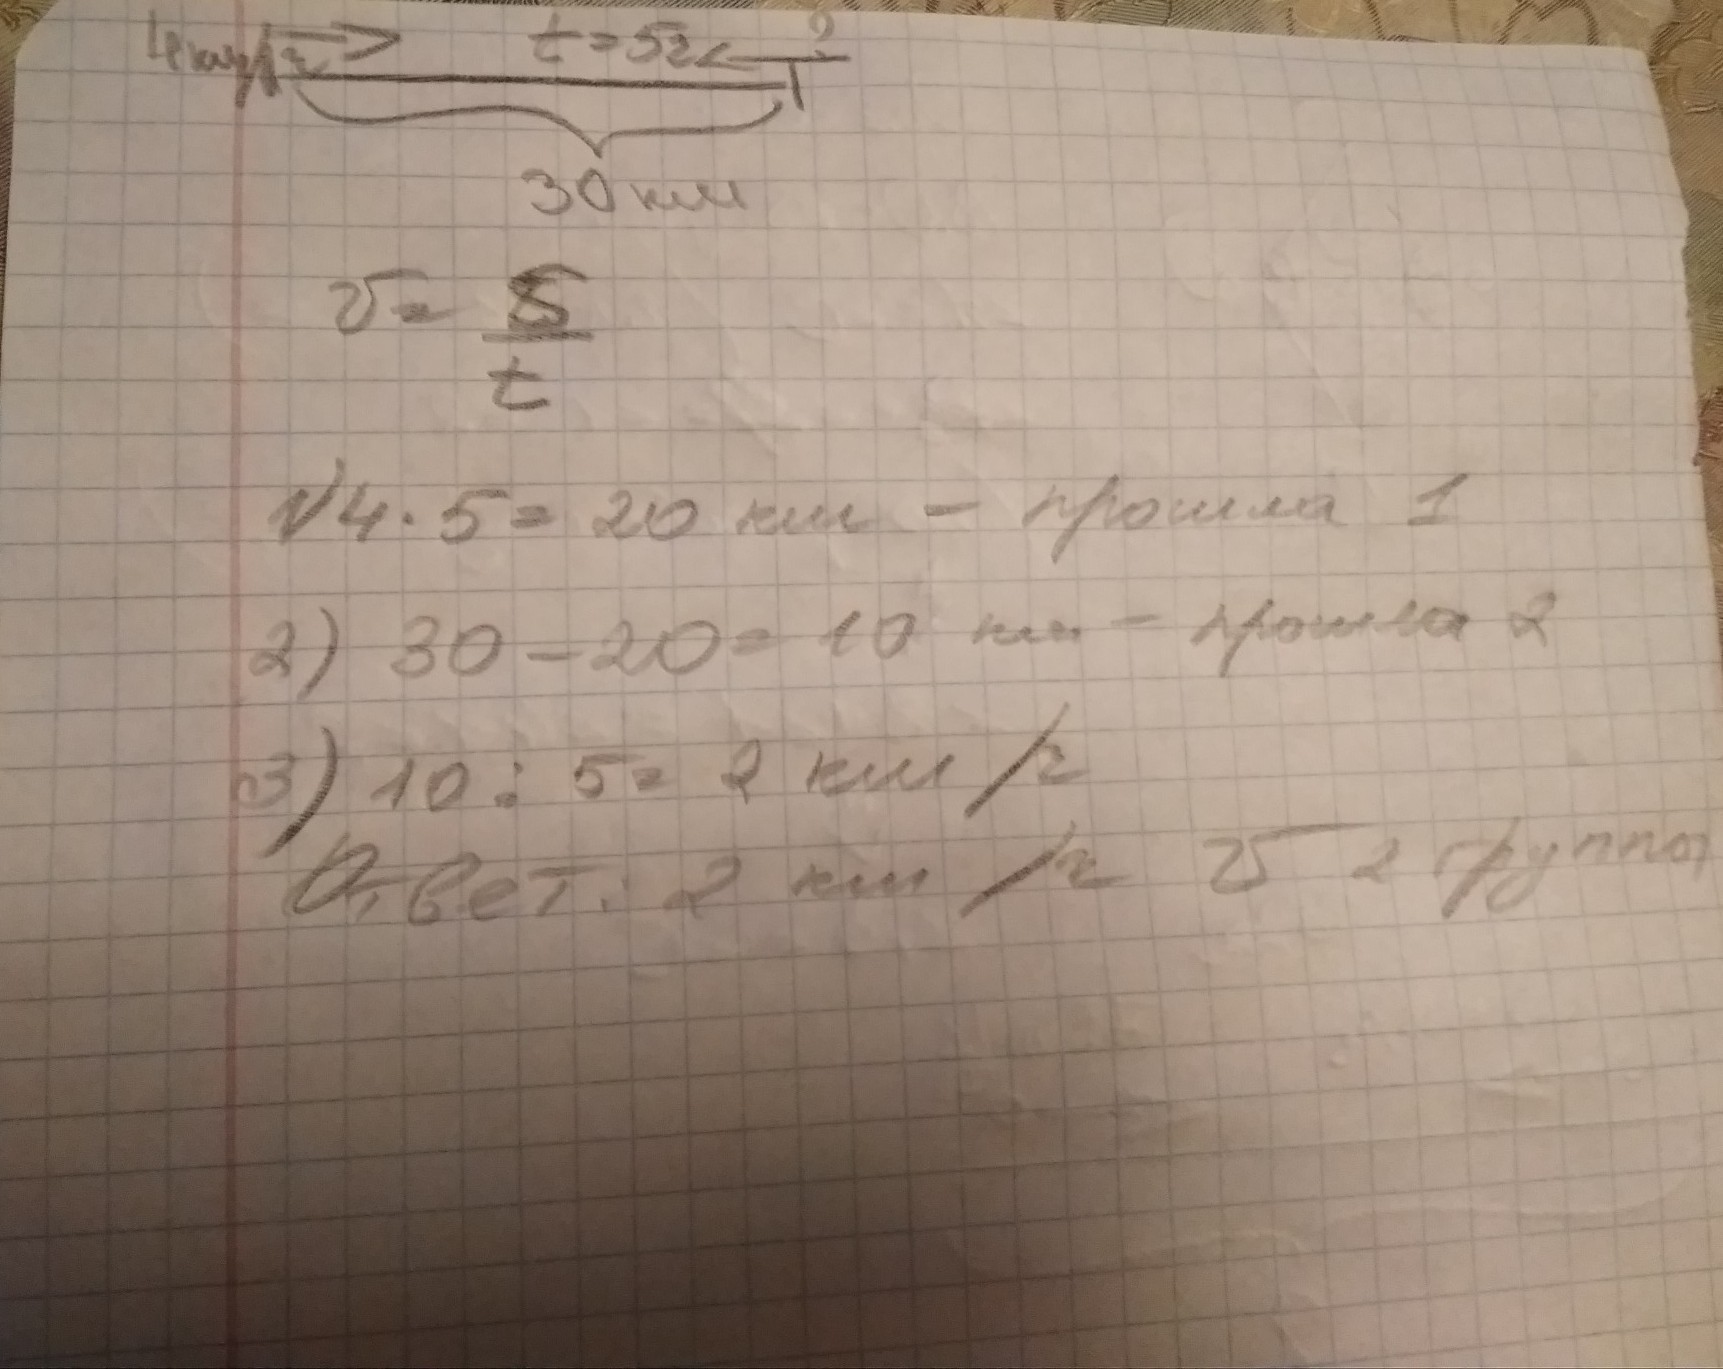 4 км/ч t = 5ч ?
30 км
v = S
t
1) 4 · 5 = 20 км - прошла 1
2) 30 - 20 = 10 км - прошла 2
3) 10 : 5 = 2 км/ч
Ответ: 2 км/ч v 2 группы